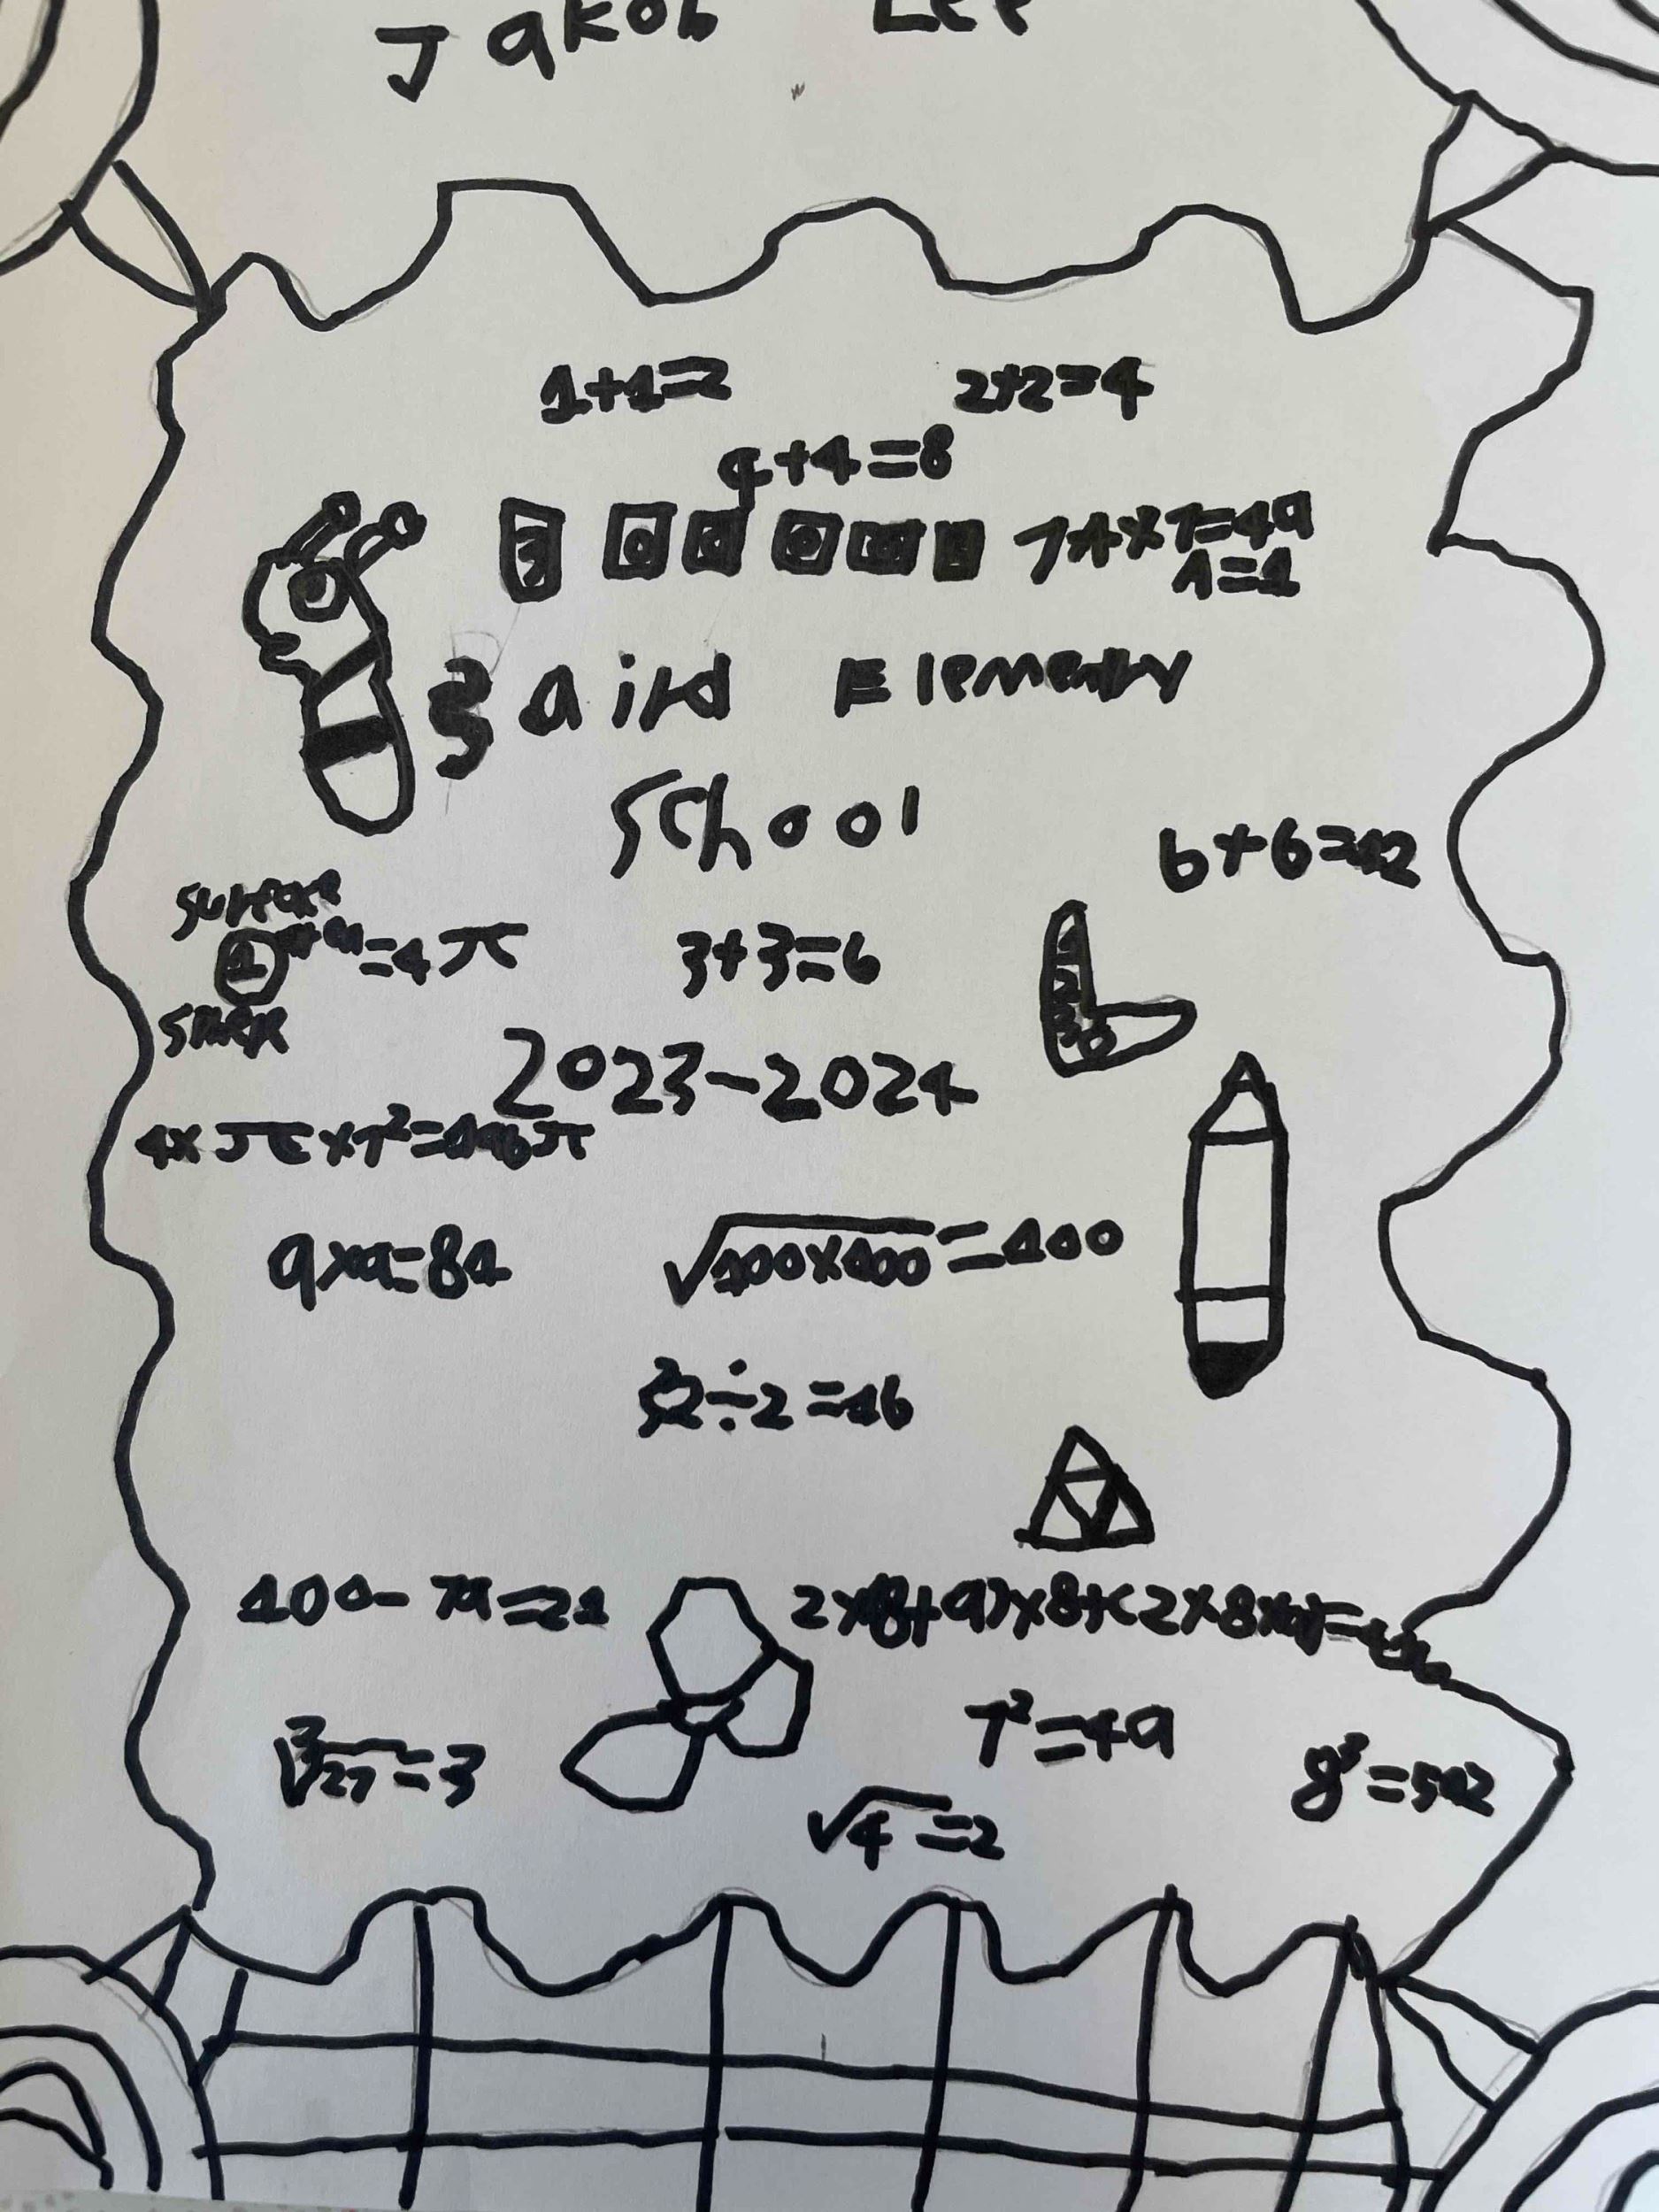 Jakob Lee
1+1=2
2+2=4
4+4=8
7A×7=49
A=1
Baird Elementry
School
6+6=12
surface
1 area=4π
3+3=6
2023-2024
4×π×7²=196π
9×9=81
√100×100=100
32÷2=16
100-79=21
2×(8+9)×8+(2×8×9)=
∛27=3
7²=49
8³=512
√4=2